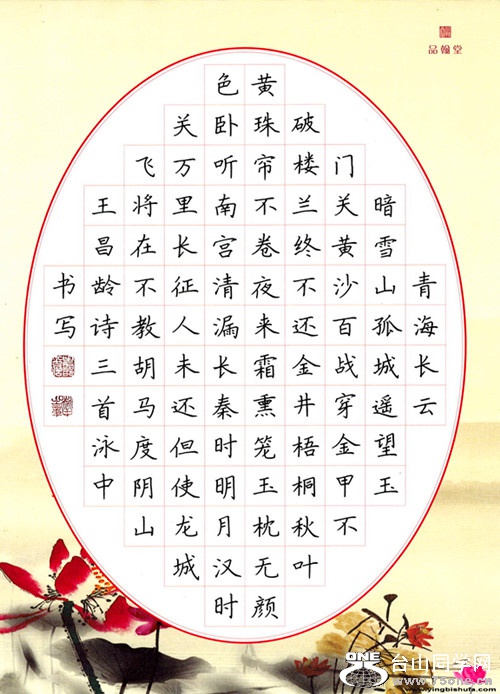 品翰堂
青海长云
暗雪山孤城遥望玉
门关黄沙百战穿金甲不
破楼兰终不还金井梧桐秋叶
黄珠帘不卷夜来霜熏笼玉枕无颜
色卧听南宫清漏长秦时明月汉时
关万里长征人未还但使龙城
飞将在不教胡马度阴山
王昌龄诗三首泳中
书写
ONE
台山同学网
yingbishufa.com